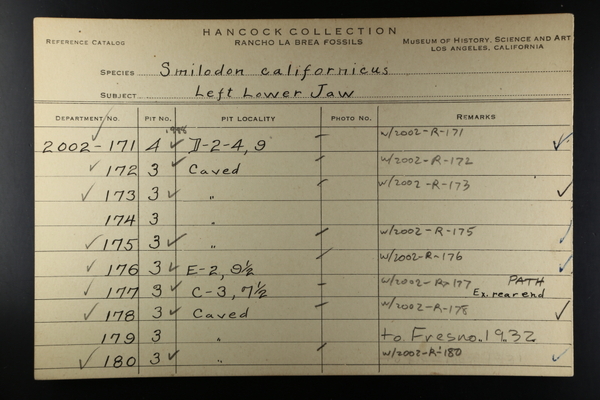 HANCOCK COLLECTION
REFERENCE CATALOG RANCHO LA BREA FOSSILS MUSEUM OF HISTORY, SCIENCE AND ART
LOS ANGELES, CALIFORNIA
SPECIES Smilodon californicus
SUBJECT Left Lower Jaw
DEPARTMENT NO. PIT NO. PIT LOCALITY PHOTO NO. REMARKS
2002-171 4 ✓ D-2-4, 9 — w/2002-R-171 ✓
✓ 172 3 ✓ Caved — w/2002-R-172
✓ 173 3 ✓ " — w/2002-R-173 ✓
174 3 "
✓ 175 3 ✓ " — w/2002-R-175 ✓
✓ 176 3 ✓ E-2, 9½ — w/2002-R-176 ✓
✓ 177 3 ✓ C-3, 7½ — w/2002-R-177 PATH
Ex. rear end
✓ 178 3 ✓ Caved w/2002-R-178 ✓
179 3 " to Fresno. 1932
✓ 180 3 ✓ " — w/2002-R-180 ✓